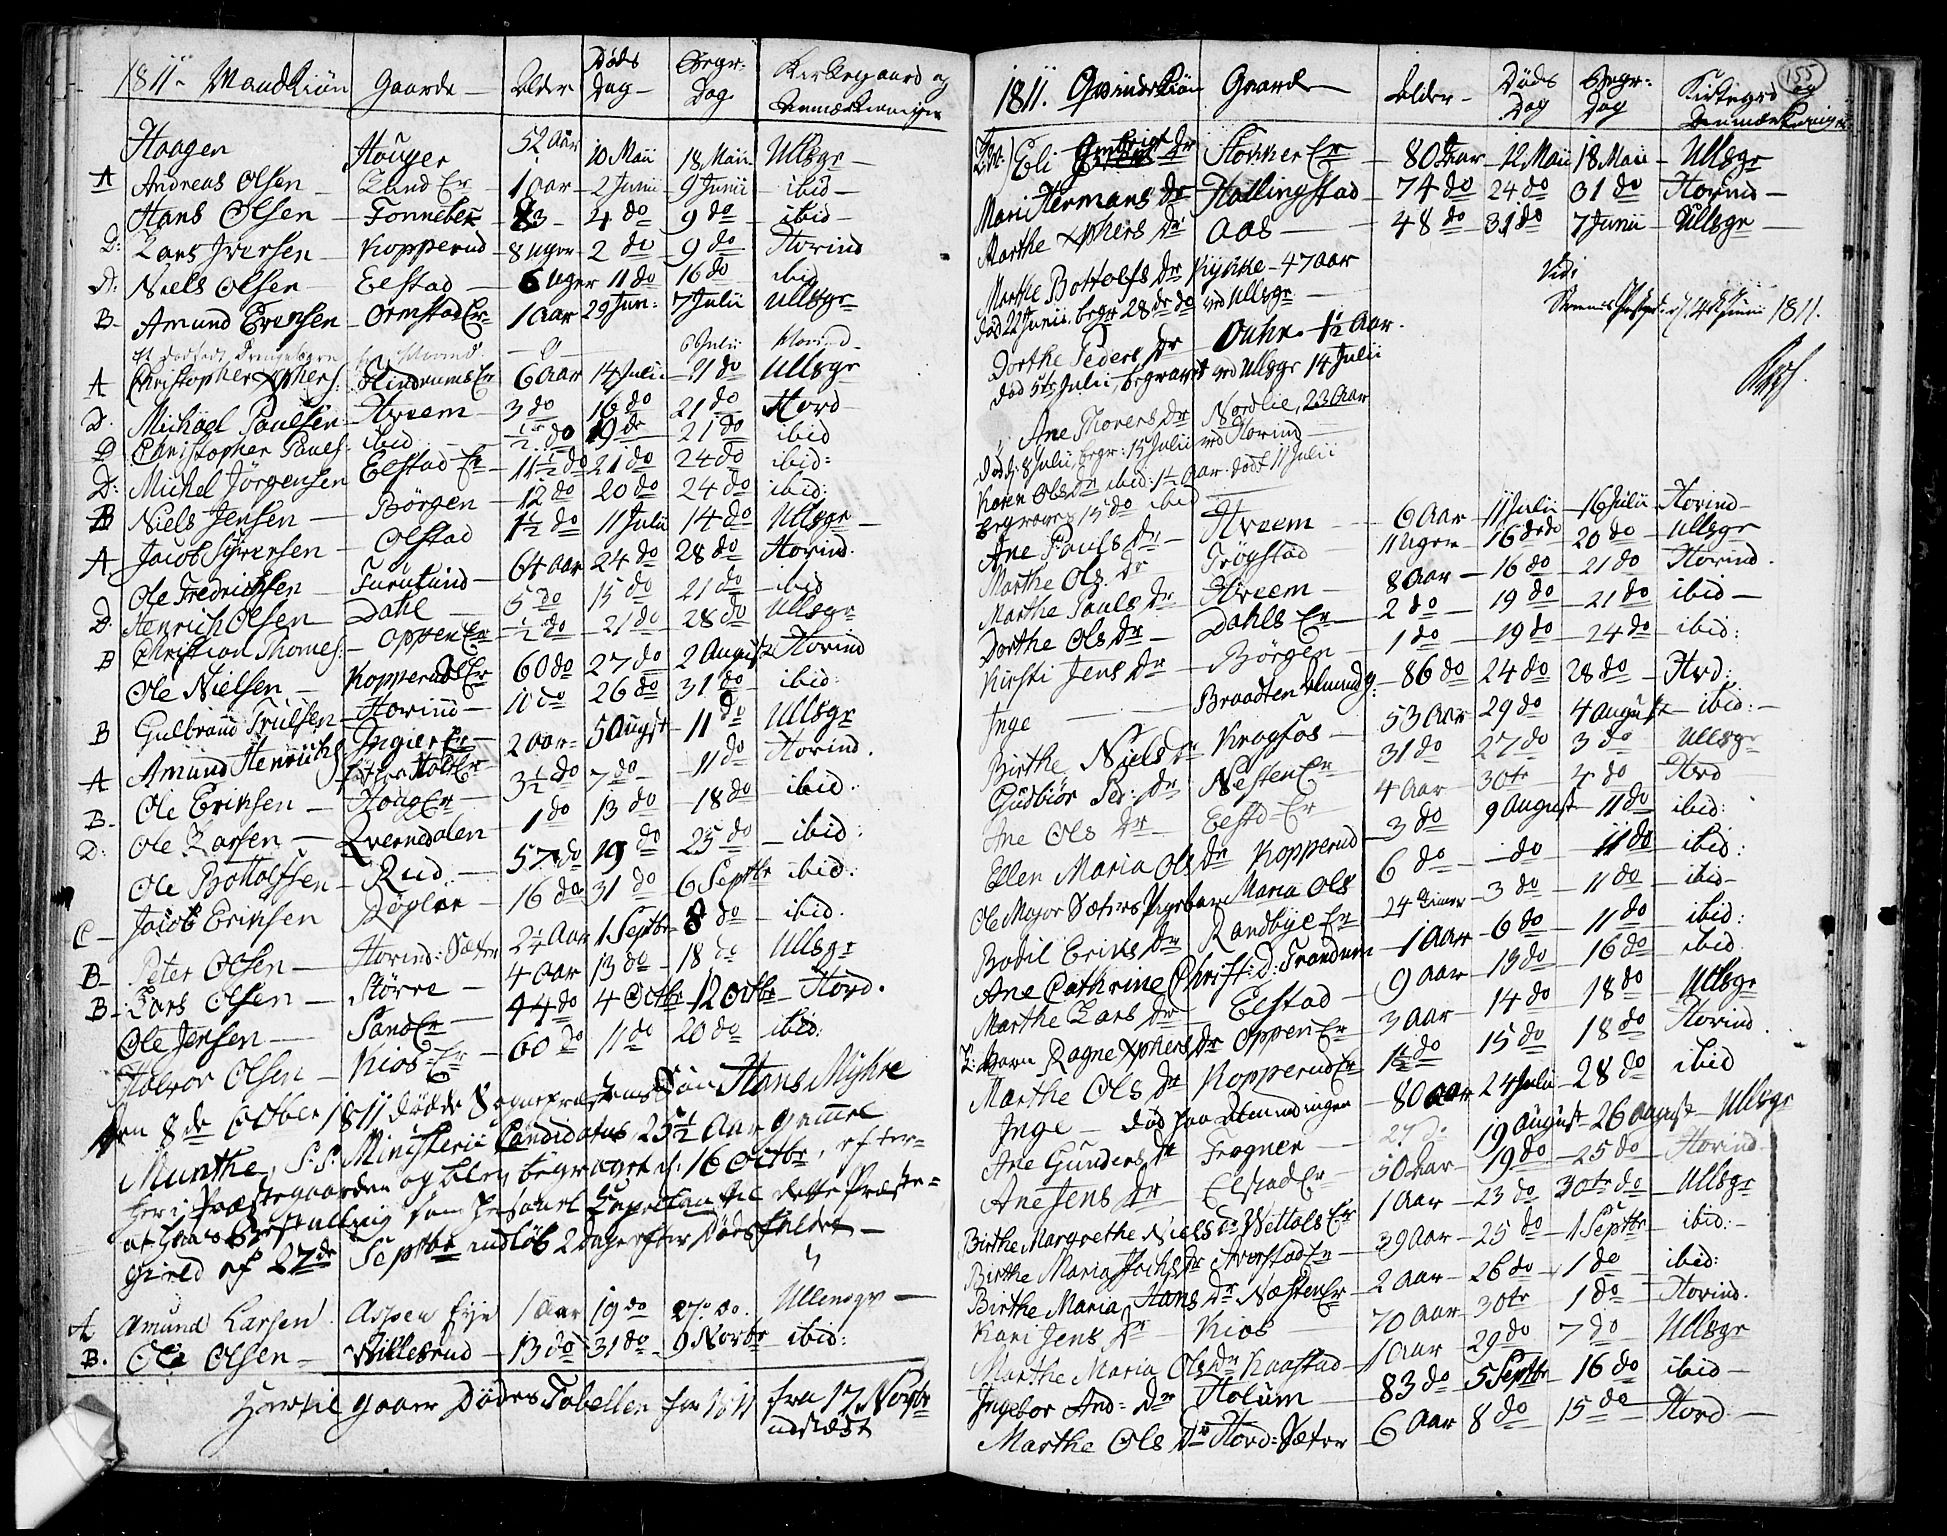 1811. Mandkiön Gaarde Alder Døds Dag Begr: Dag Kirkegaard og Anmærkninger
Haagen Houger 52 Aar 10 Maii 18 Maii Ullsgr
A Andreas Olsen Lund Er 1 Aar 2 Junii 9 Junii ibid
Hans Olsen 4 do 9 do ibid
D: Lars Iversen Kopperud 8 Uger 2 do 9 do Hovind
D: Niels Olsen Elstad 6 Uger 11 do 16 do ibid
B Amund Evensen Ormstad Er 1 Aar 29 Jun: 7 Julii Ullsgr
et dødfødt Drengebarn 6 Julii Hovind
A Christopher Xphers. Hindrums Er 6 Aar 14 Julii 21 do Ullsgr
D. Michael Paulsen Hveem 3 do 16 do 21 do Hovd
D Christopher Pauls. ibid ½ do 19 do 21 do ibid
D: Michel Jörgensen Elstad Er 11½ do 21 do 24 do ibid:
B Niels Jensen Börgen 12 do 20 do 24 do ibid:
A Jacob Syversen Olstad 1½ do 11 Julii 14 do Ullsgr
Ole Fredrichsen Furulund 64 Aar 24 do 28 do Hovind.
D. Henrich Olsen Dahl 5 do 15 do 21 do ibid
B Christian Thomes. Oppen Er ½ do 21 do 28 do Ullsgr
Ole Nielsen Kopperuds Er 60 do 27 do 2 August Hovind
B Gulbrand Trulsen Hovind 10 do 26 do 31 do ibid:
A Amund Henrichs Ingier Er 2 Aar 5 August 11 do Ullsgr
B. Ole Eriksen Haug Er 3½ do 7 do 11 do Hovind.
D: Ole Larsen Kverndalen 1 do 13 do 18 do ibid.
Ole Bottolfsen Rud 57 do 19 do 25 do ibid:
C Jacob Eriksen Døgler 16 do 31 do 6 Septbr ibid:
B Peter Olsen Hovind: Sæter 2½ Aar 1 Septbr 8 do ibid.
B Lars Olsen Större 4 Aar 13 do 18 do Ullsgr
Ole Jensen Sand Er 44 do 4 Octbr 12 Octbr Hovd.
Halvor Olsen Kios Er 60 do 11 do 20 do ibid:
Den 8de October 1811 døde Sognepræstens Søn Hans Mÿhre
Munthe, S: S: Ministerii Candidatus 25½ Aar gammel
her i Præstegaarden og blev begravet d: 16 Octbr, efter-
at hans Bestalling som Personel Capellan til dette Præste-
gield af 27de Septbr indløb 2 Dage efter Dødsfaldet
A Amund Larsen Aspen Eye 1 Aar 19 do 27 do. Ullensgr
B. Ole Olsen Willesrud 13 do 31 do 9 Novbr ibid:
Hertil gaaer Dødes Tabellen for 1811 fra 17 Novbr
indsendt
155
1811. Qvindekiön Gaarde Alder Døds Dag Begr: Dag Kirkegrd og Anmærkninger
Eli Stokker Er 80 Aar 12 Maii 18 Maii Ullsgr
Mari Hermans Dr Hallingstad 74 do 24 do 31 do Hovind
Marthe Xphers Dr Aas 48 do 31 do 7 Junii Ullsgr
Marthe Bottolfs Dr Kykke 47 Aar
død 22 Junii begr 28de do ved Ullsgr
Vide
1811.
Dorthe Peders Dr 1½ Aar.
død 5te Julii, begravet ved Ullsgr 14 Julii
Ane Thorers Dr Nordlie, 23 Aar
død 8 Julii, begr: 15 Julii ved Hovind
Karen Ols Dr ibid: 1½ Aar død 11 Julii
begraves 15 do ibid
Ane Pauls Dr Hveem 6 Aar 11 Julii 16 Julii Hovind
Marthe Ols. Dr Trögstad 11 Uger 16 do 20 do Ullsgr
Marthe Pauls Dr Hveem 8 Aar 16 do 21 do Hovind.
Dorthe Ols Dr Dahls Er 2 do 19 do 21 do ibid
Kirsti Jens Dr Börgen 1 do 19 do 24 do ibid:
Inge Braadten Almindg. 86 do 24 do 28 do Hvd:
Birthe Niels Dr Kragfos 53 Aar 29 do 4 August ibid:
Gudbiör Ped: Dr Nesten Er 31 do 27 do 3 do Ullsgr
Ane Ols Dr Elstd Er 4 Aar 30te 4 do Hvd
Ellen Maria Ols Dr Kopperud 3 do 9 August 11 do ibid:
Ole Major Sæters Pigebarn Maria Ols 6 do do 11 do ibid:
Bodil Eriks Dr Randbye Er 24 Timer 3 do 11 do ibid
Ane Cathrine Christ: D: Trandum 1 Aar 6 do 11 do ibid:
Marthe Lars Dr Elstad 9 Aar 13 do 16 do ibid.
Ragne Xphers Dr Oppen Er 3 Aar 14 do 18 do Ullsgr
Marthe Ols Dr Kopperud Er 1½ do 15 do 18 do Hovind.
Inge død paa Almindingen 80 Aar 24 Julii 28 do ibid
Ane Gunders Dr Frogner 27 do 19 August 26 August Ullsgr
Ane Jens Dr Elstad Er 50 Aar 19 do 25 do Hovind
Birthe Margrethe Niels Dr Wettals Er 1 Aar 23 do 30te do Ullsgr
Birthe Maria Jachs Dr Arverstad Er 39 Aar 25 do 1 Septbr ibid:
Birthe Maria Hans Dr Næsten Er 2 Aar 26 do 1 do ibid:
Kari Jens Dr Kios 70 Aar 30te 1 do Hovind.
Marthe Maria Ols Dr Kaastad 1 Aar 29 do 7 do Ullsgr
Ingebor And: Dr Holum 83 do 5 Septbr 16 do ibid
Marthe Ols Dr Hovd: Sæter 6 Aar 8 do 15 do Hovd.